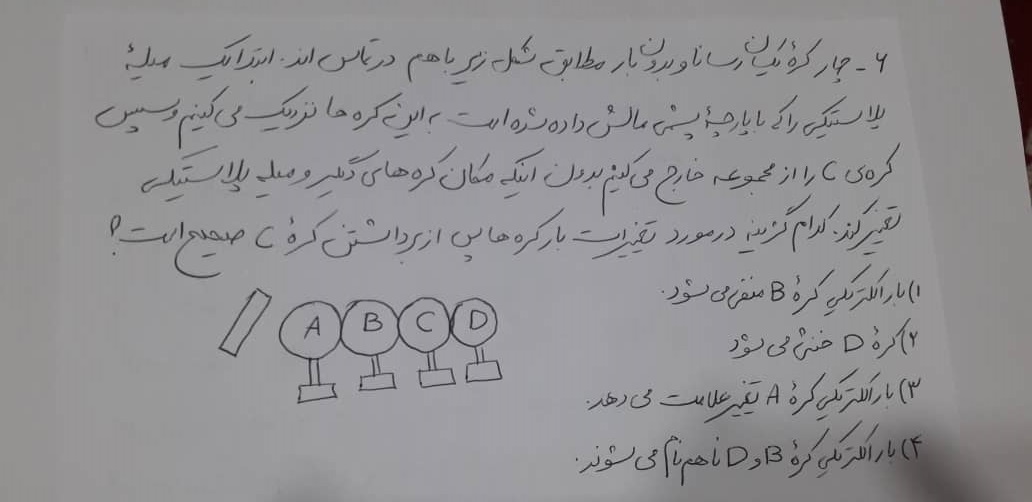 ۶- چهار کرهٔ یکسان رسانا و بدون بار مطابق شکل زیر با هم در تماس اند. ابتدا یک میلهٔ
پلاستیکی را که با پارچهٔ پشمی مالش داده شده است به این کره ها نزدیک می کنیم و سپس
کره ی C را از مجموعه خارج می کنیم بدون اینکه مکان کره های دیگر و میله پلاستیکی
تغییر کند. کدام گزینه در مورد تغییرات بار کره ها پس از برداشتن کرهٔ C صحیح است؟
۱) بار الکتریکی کرهٔ B منفی می شود.
۲) کرهٔ D خنثی می شود
۳) بار الکتریکی کرهٔ A تغییر علامت می دهد.
۴) بار الکتریکی کرهٔ B و D ناهم نام می شوند.
A B C D